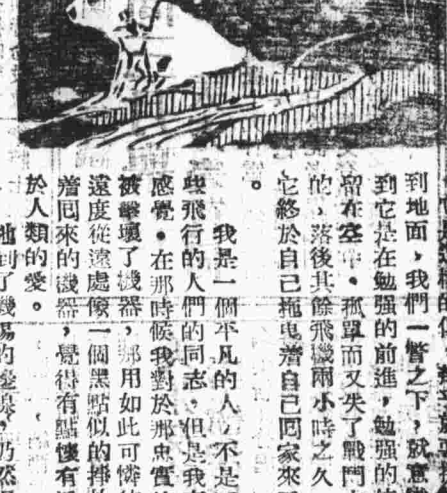 到地面，我們一瞥之下，就意
到它是在勉强的前進，勉强的
留在空中。孤單而又失了戰鬥
的，落後其餘飛機兩小時之久
它終於自己拖曳着自己回家來
。
我是一個平凡的人，不是
飛行的人們的同志，但是我
感覺。在那時候我對於那忠實
被擊壞了機器，那用如此可憐
遠度從遠處像一個黑點似的掙
着回來的機器，覺得有點懷有
於人類的愛。
到了機場的